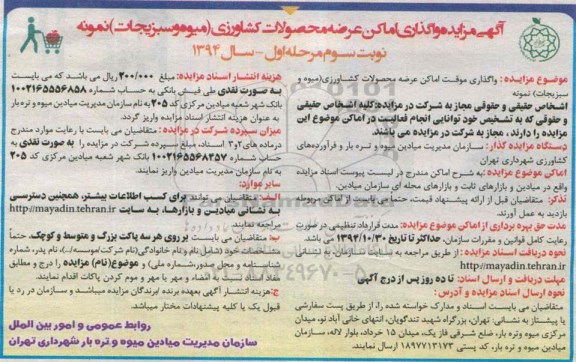 آگهی مزایده واگذاری اماکن عرضه محصولات کشاورزی (میوه و سبزیجات) نمونه
نوبت سوم مرحله اول - سال ۱۳۹۴
موضوع مزایده : واگذاری موقت اماکن عرضه محصولات کشاورزی(میوه و
سبزیجات) نمونه
اشخاص حقیقی و حقوقی مجاز به شرکت در مزایده:کلیه اشخاص حقیقی
و حقوقی که به تشخیص خود توانایی انجام فعالیت در اماکن موضوع این
مزایده را دارند ، مجاز به شرکت در مزایده می باشند.
دستگاه مزایده گذار : سازمان مدیریت میادین میوه و تره بار و فرآورده‌های
کشاورزی شهرداری تهران
اماکن موضوع مزایده :به شرح اماکن مندرج در لیست پیوست اسناد مزایده
واقع در میادین و بازارهای ثابت و بازارهای محله ای سازمان میادین.
تذکر: متقاضیان قبل از ارائه پیشنهاد قیمت، حتماً می بایست از اماکن مربوطه
بازدید به عمل آورند.
مدت حق بهره برداری از اماکن موضوع مزایده: مدت قرارداد تنظیمی در صورت
رعایت کامل قوانین و مقررات سازمان، حداکثر تا تاریخ ۱۳۹۷/۱۰/۳۰ می باشد
نحوه دریافت اسناد مزایده : از طریق مراجعه به سایت سازمان به نشانی
http://mayadin.tehran.ir
مهلت دریافت و ارسال اسناد: تا ده روز پس از درج آگهی
نحوه ارسال اسناد مزایده و آدرس :
متقاضیان می بایست اسناد و مدارک خواسته شده را، از طریق پست سفارشی
یا پیشتاز به نشانی: تهران، بزرگراه شهید تندگویان، انتهای خانی آباد نو، میدان
مرکزی میوه وتره بار، ضلع شرقی فاز یک، میدان ۱۵ خرداد، بلوار لاله، سازمان
میادین میوه و تره بار، کد پستی ۱۸۹۷۷۱۳۱۷۳ ارسال نمایند.
هزینه انتشار اسناد مزایده: مبلغ ۲۰۰/۰۰۰ ریال می باشد که می بایست
به صورت نقدی طی فیش بانکی به حساب شماره ۱۰۰۲۱۶۵۵۵۶۸۵۸
بانک شهر شعبه میادین مرکزی کد ۲۰۵ به نام سازمان مدیریت میادین میوه و تره بار
به عنوان هزینه انتشار اسناد مزایده واریز گردد.
میزان سپرده شرکت در مزایده : متقاضیان می بایست با رعایت موارد مندرج
درماده های۲و۳ اسناد، مبلغ سپرده شرکت در مزایده را به صورت نقدی به
حساب شماره ۱۰۰۲۱۶۵۵۶۸۲۵۷ بانک شهر شعبه میادین مرکزی کد ۲۰۵
به نام سازمان مدیریت میادین واریز نمایند.
سایر موارد:
الف: متقاضیان می توانند برای کسب اطلاعات بیشتر، همچنین دسترسی
به نشانی میادین و بازارها، به سایت http://mayadin.tehran.ir
مراجعه نمایند
ب: متقاضیان می بایست بر روی هر سه پاک بزرگ و متوسط و کوچک، حتماً
مشخصات خود (شامل نام ونام خانوادگی(نام شرکت/موسسه/...)، نام پدر، شماره
شناسنامه، محل صدور،شماره ملی) و موضوع(نام) مزایده را درج و مطابق
مفاد اسناد نسبت به امضاء و مهر یا مهر و موم کردن پاکات اقدام نمایند.
ج: هزینه انتشار آگهی بعهده برنده /برندگان مزایده میباشد و سازمان در رد یا
قبول یک یا کلیه پیشنهادات مختار میباشد.
روابط عمومی و امور بین الملل
سازمان مدیریت میادین میوه و تره بار شهرداری تهران